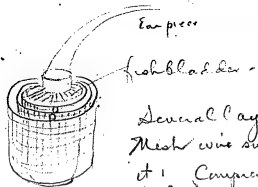 Ear piece
fishbladder.
Several lay
Mesh wire su
it! Compre